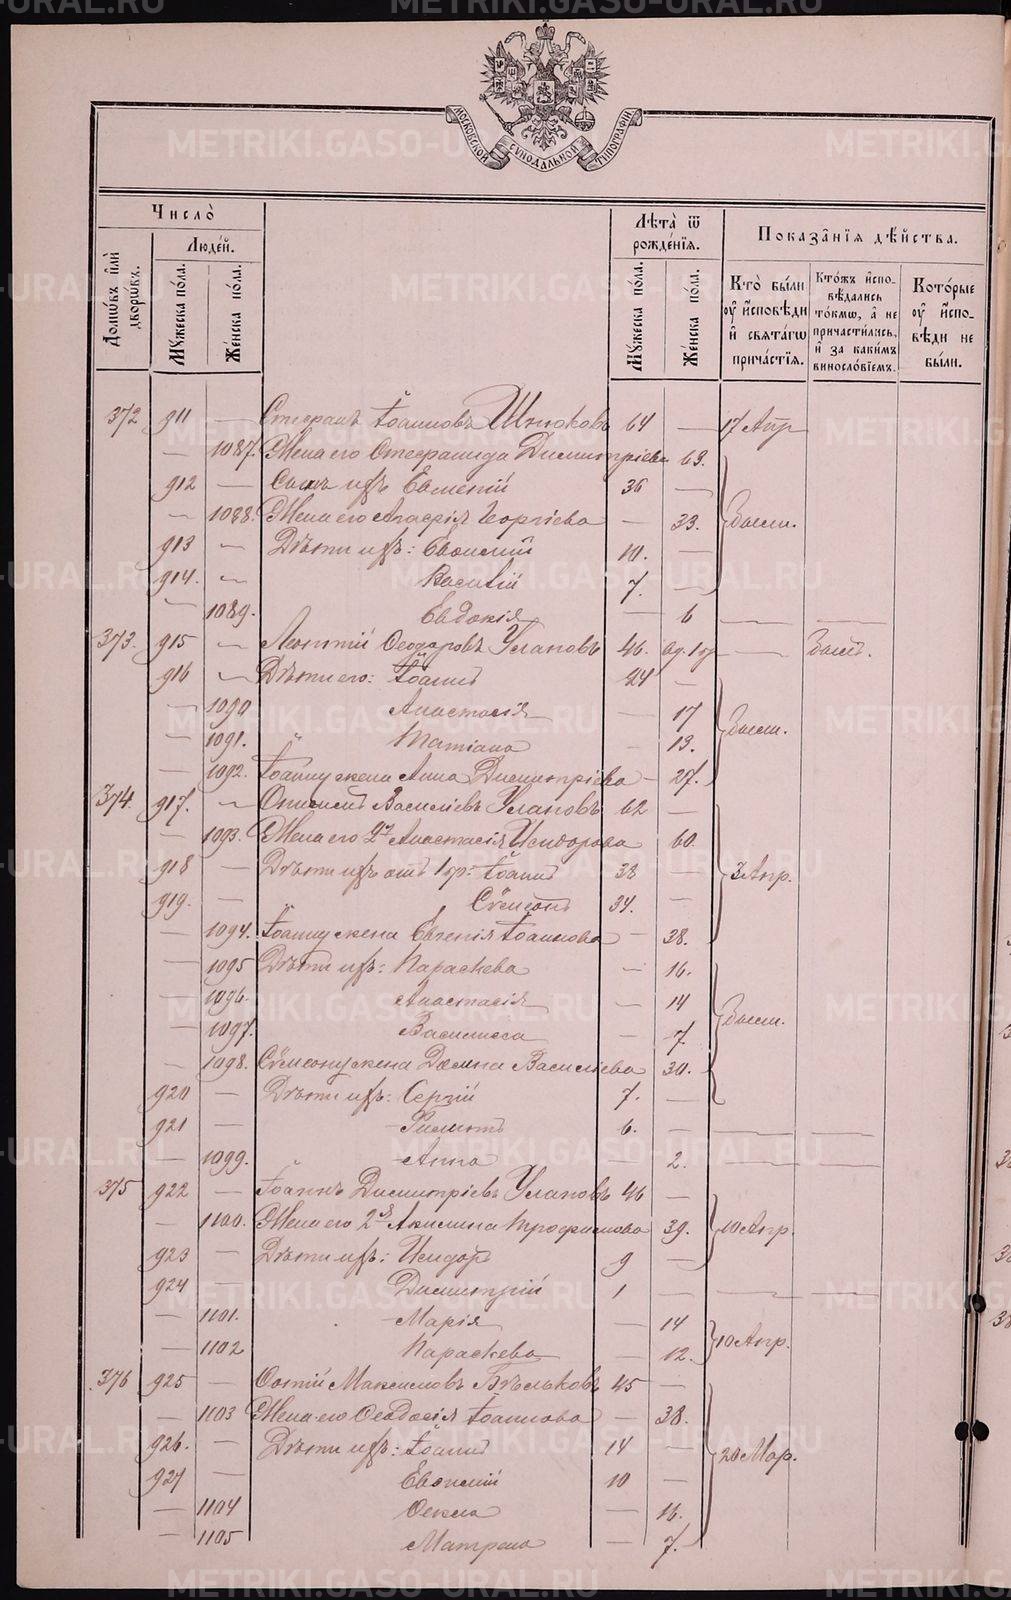 МОСКОВСКОЙ СѴНОДАЛЬНОЙ ТИПОГРАФІИ
Число̀
Лѣта̀ ѿ рожде́нїѧ.
Показа̑нїѧ дѣ́йства.
Людей.
Домѡвъ и҆лѝ дворѡвъ.
Мꙋ́жеска по́ла.
Же́нска по́ла.
Мꙋ́жеска по́ла.
Же́нска по́ла.
Кто̀ бы́ли ᲂу҆ и҆сповѣ́ди и҆ свѧта́гѡ прича́стїѧ.
Кто́жъ и҆спо-вѣ́дались то́кмѡ, а҆ не причасти́лись, и҆ за каки́мъ винослові́емъ.
Кото́рые ᲂу҆ и҆спо-вѣ́ди не бы́ли.
372 911 — Стефанъ Іоанновъ Шнюковъ 64 — 17 Апр
— 1087. Жена его Стефанида Димитріева 63.
912 — Сынъ ихъ Евменій 36 —
— 1088. Жена его Агафія Георгіева — 33. Тыси.
913 — Дѣти ихъ: Евѳимій 10. —
914. — Василій 7. —
— 1089. Евдокія — 6 — —
373. 915 — Леонтій Ѳеодоровъ Улановъ 46. вд. —
916 — Дѣти его: Іоаннъ 24 —
— 1090 Анастасія — 17
— 1091. Татіана — 13.
— 1092. Іоанну жена Анна Димитріева — 27.
374. 917. — Василіевъ Улановъ 62 —
— 1093. Жена его 2я Анастасія Исидорова 60.
918 — Дѣти ихъ отъ 1 бр: Іоаннъ 38 — 3 Апр.
919. — Сѵмеонъ 34. —
— 1094. Іоанну жена Евгенія Іоаннова — 38.
— 1095 Дѣти ихъ: Параскева — 16.
— 1096. Анастасія — 14
— 1097. Василисса — 7.
— 1098. Сѵмеону жена Домна Василіева 30.
920 — Дѣти ихъ: Сергій 7. —
921 — Филиппъ 6. — — —
— 1099. Анна — 2. — —
375 922 — Іоаннъ Димитріевъ Улановъ 46 —
— 1100. Жена его 2я Акилина Трофимова 39. 10 Апр.
923 — Дѣти ихъ: Исидоръ 9 —
924 — Димитрій 1 — — —
— 1101. Марія — 14
— 1102 Параскева — 12. 10 Апр.
376 925 — Фотій Максимовъ Бѣльковъ 45 —
— 1103 Жена его Ѳеодосія Іоаннова — 38.
926. — Дѣти ихъ: Іоаннъ 14 —
927 — Евѳимій 10 — 20 Мар.
— 1104 Ѳекла — 16.
— 1105 Матрона — 7.